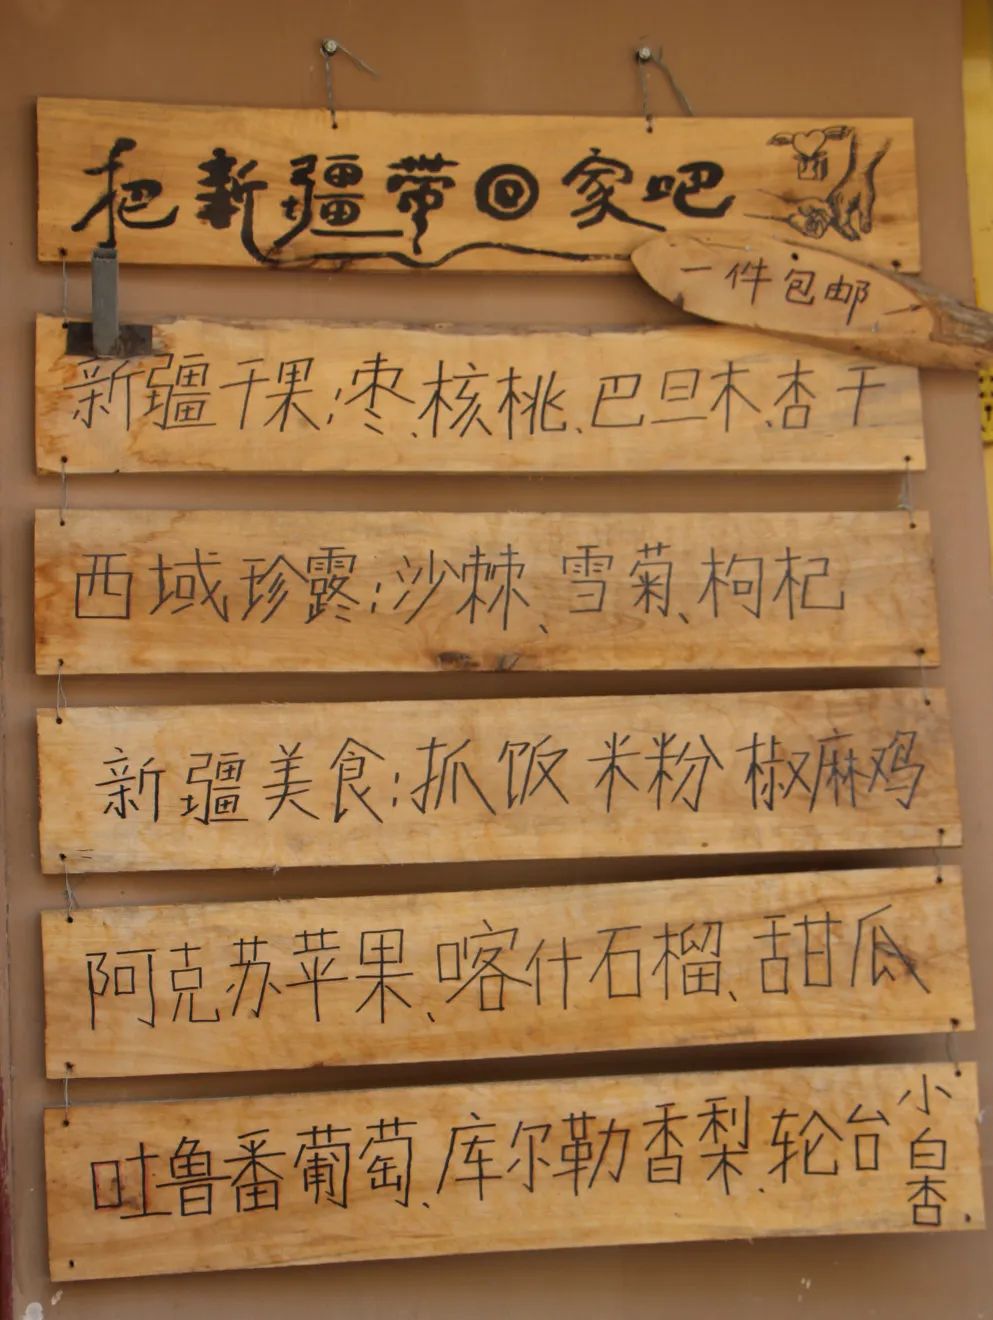 把新疆带回家吧
一件包邮
新疆干果:枣、核桃、巴旦木、杏干
西域珍露:沙棘、雪菊、枸杞
新疆美食:抓饭 米粉 椒麻鸡
阿克苏苹果、喀什石榴、甜瓜
吐鲁番葡萄、库尔勒香梨、轮台小白杏